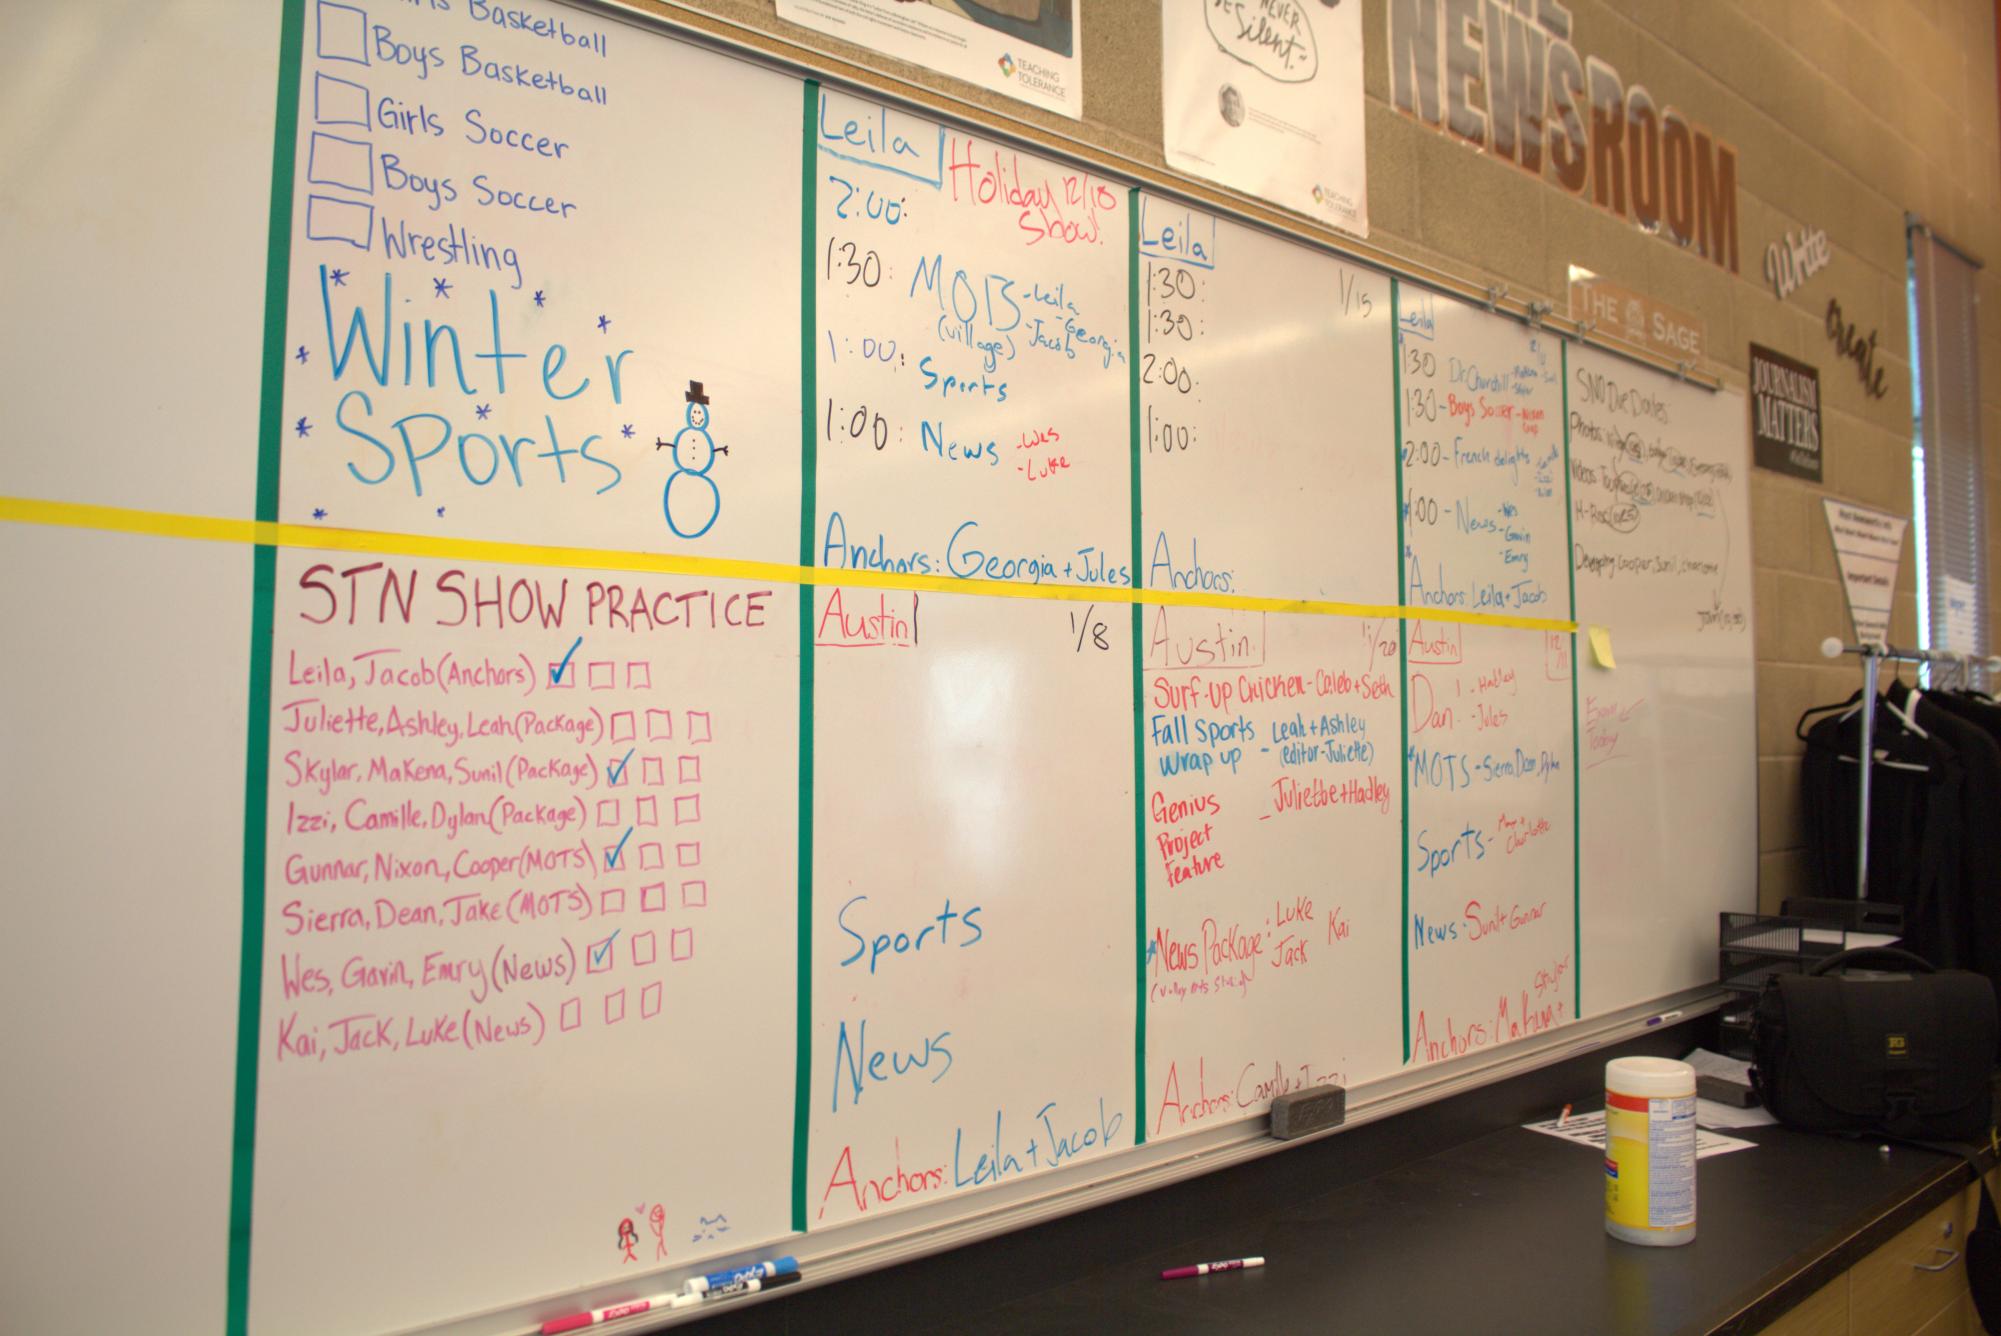 Basketball
Boys Basketball
Girls Soccer
Boys Soccer
Wrestling
Winter
Sports
STN SHOW PRACTICE
Leila, Jacob (Anchors)
Juliette, Ashley, Leah (Package)
Skylar, Makena, Sunil (Package)
Izzi, Camille, Dylan (Package)
Gunnar, Nixon, Cooper (MOTS)
Sierra, Dean, Jake (MOTS)
Wes, Gavin, Emry (News)
Kai, Jack, Luke (News)
Leila
Holiday 12/18
Show!
2:00:
1:30: MOB -Leila
-Georgia
(village) -Jacob
1:00: Sports
1:00: News -Wes
-Luke
Anchors: Georgia + Jules
Austin 1/8
Sports
News
Anchors: Leila + Jacob
Leila
1/15
1:30:
1:30:
2:00:
1:00:
Anchors:
Austin 1/20
Surf-up Chicken - Caleb + Seth
Fall Sports Leah + Ashley
Wrap up - (editor-Juliette)
Genius - Juliette + Hadley
Project
Feature
News Package: Luke Kai
Jack
Anchors: Camille + Izzi
Leila
1:30 Dr. Churchill
1:30 - Boys Soccer - Nixon
Coop
2:00 - French delights
1:00 - News - Wes
- Gavin
- Emry
Anchors: Leila + Jacob
Austin 12/11
Dan - Hadley
- Jules
MOTS - Sierra, Dean, Dylan
Sports - Charlotte
News - Sunil + Gunnar
Skylar
Anchors: Makena +
SNO Due Dates:
Photos:
Videos:
Developing Cooper, Sunil,
Today
TEACHING
TOLERANCE
NEVER
BE
Silent."
TEACHING
TOLERANCE
THE
NEWSROOM
Write
Create
THE SAGE
JOURNALISM
MATTERS
Important Details